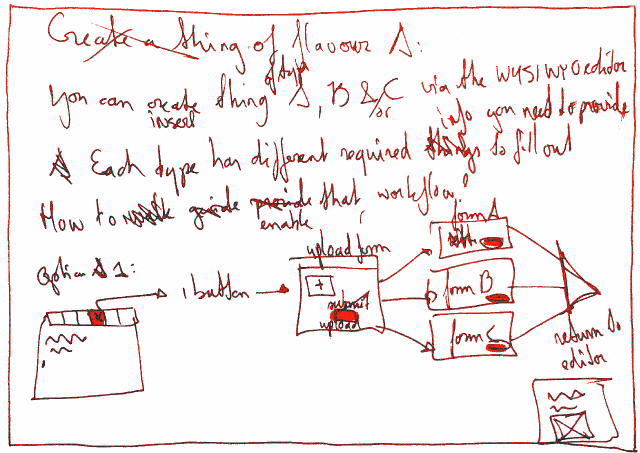 Create a thing of flavour A:
of type
You can create thing A, B &/or C via the WYSIWYG editor
insert
info you need to provide
A Each type has different required things to fill out
How to guide provide that workflow?
enable
Option 1:
1 button
upload form
+
submit
upload
form A
form B
form C
return to
editor